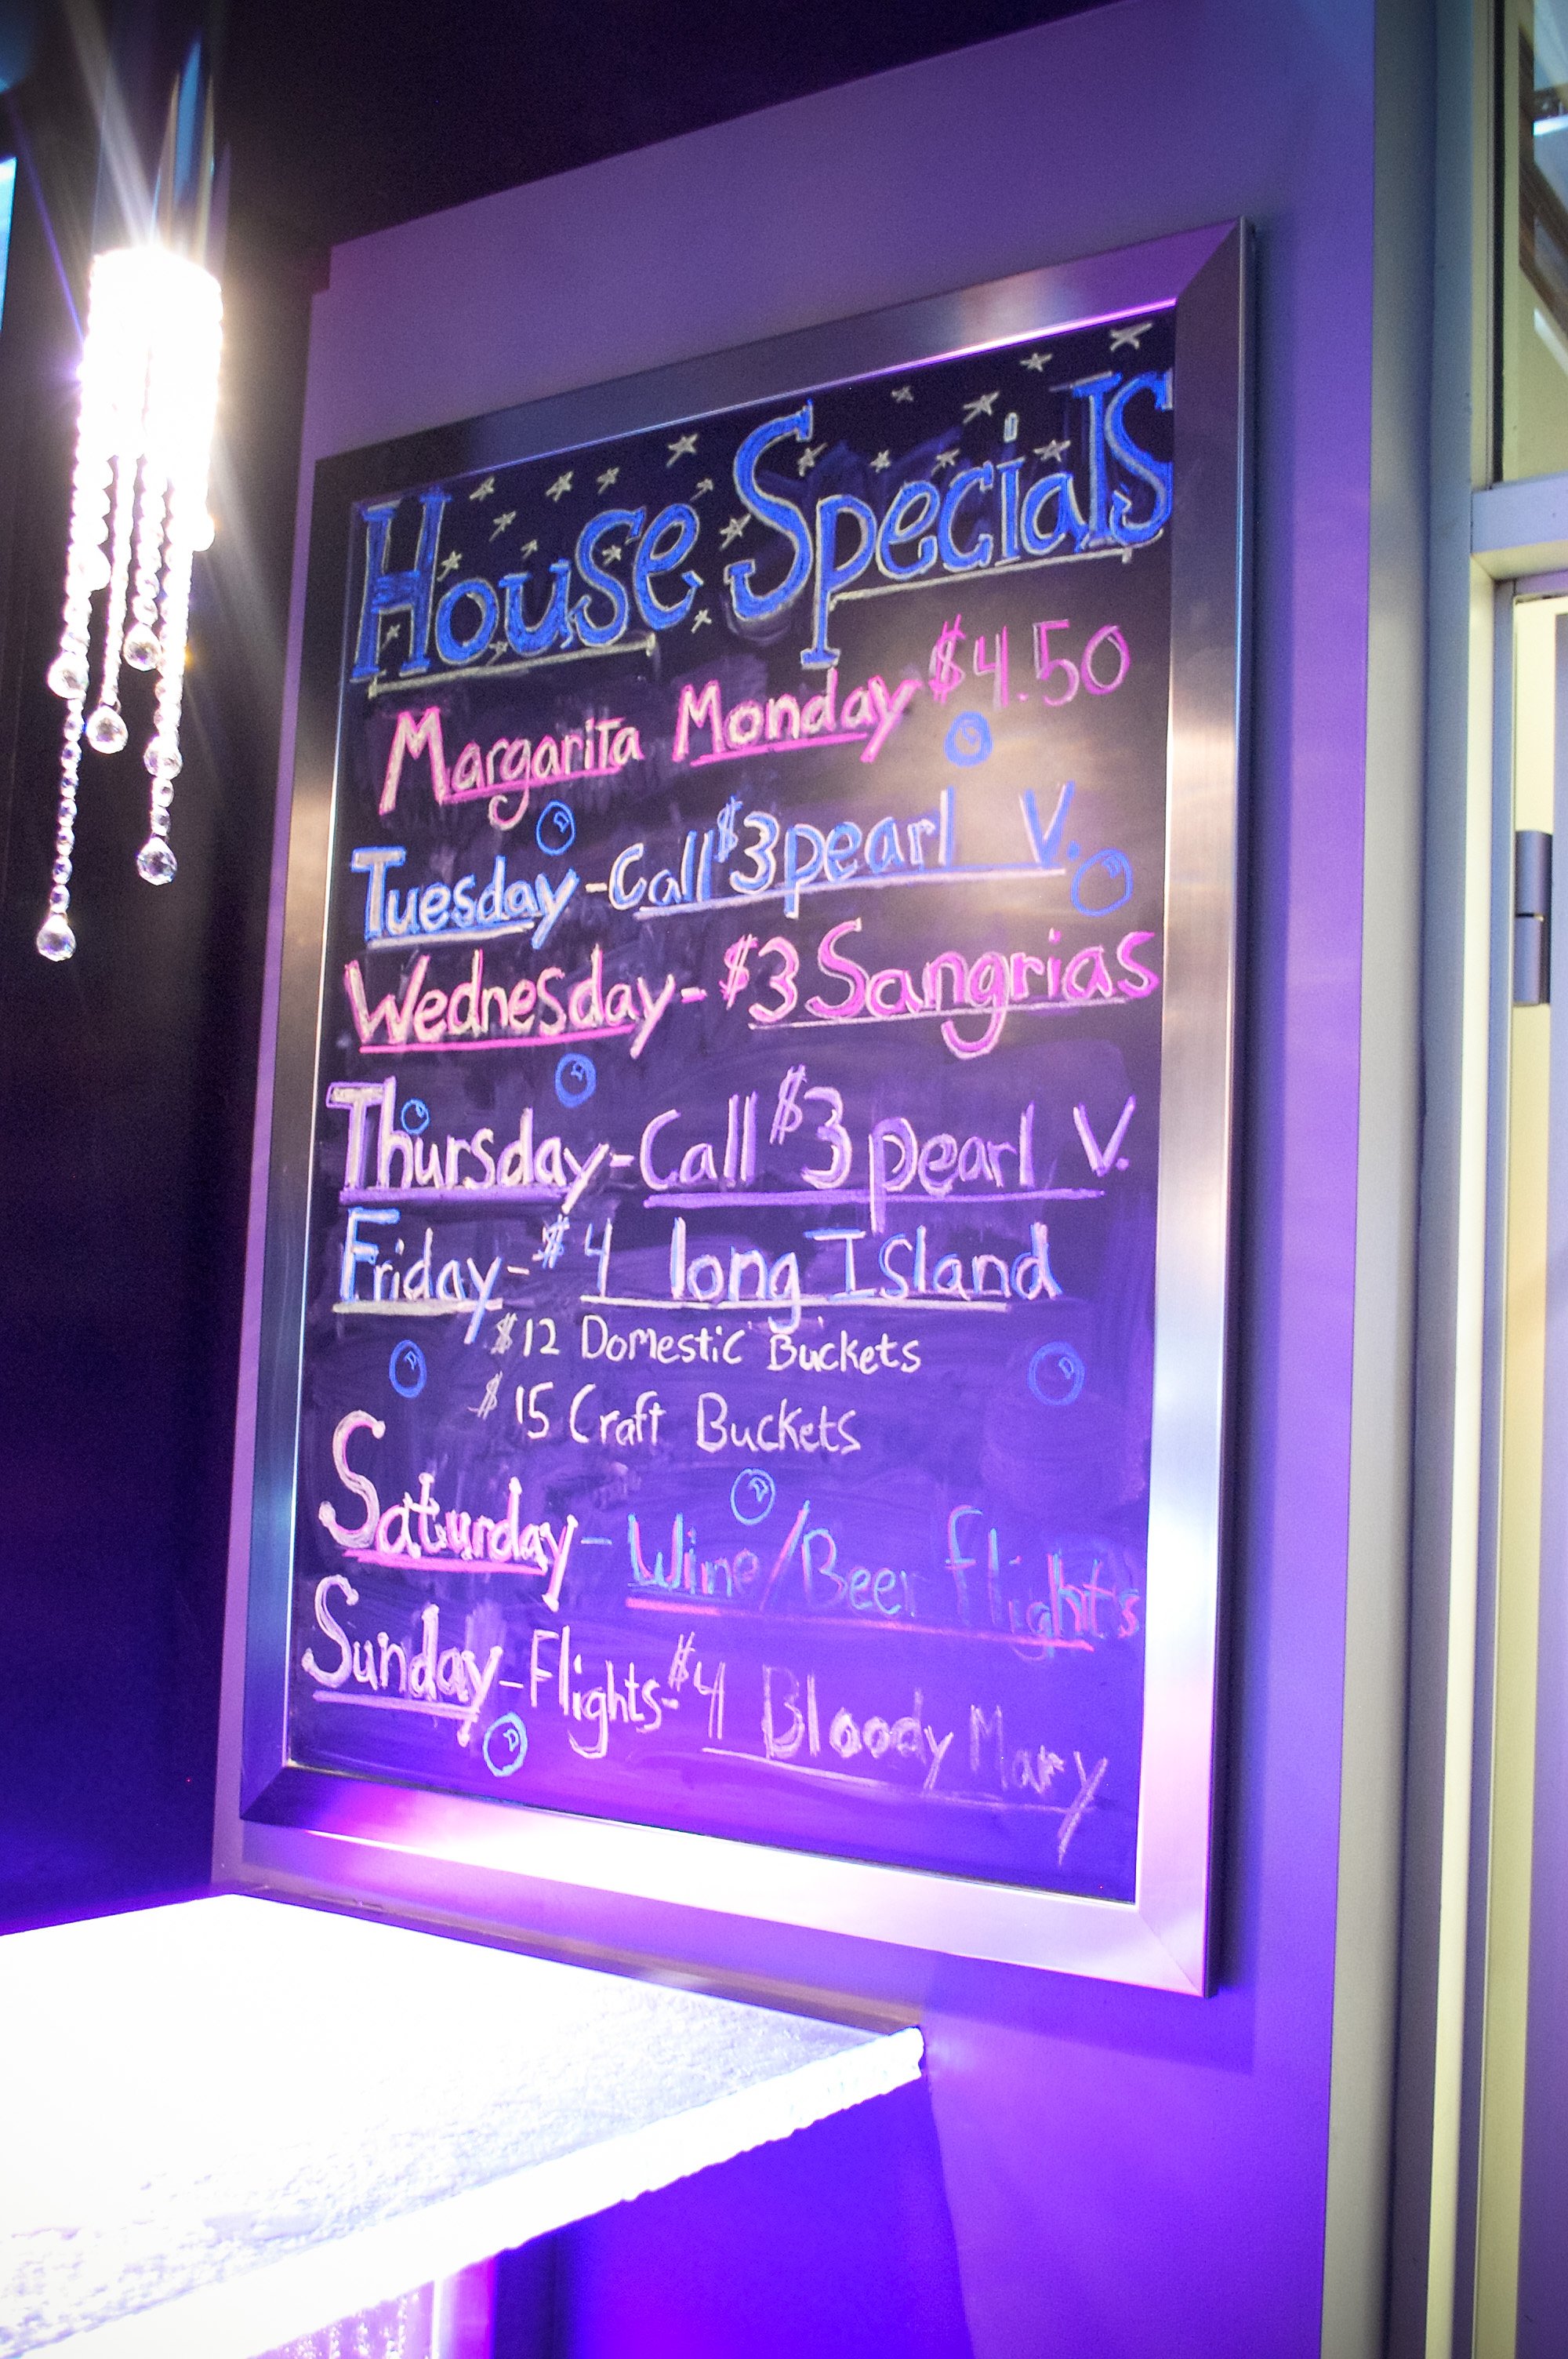 House Specials
Margarita Monday $4.50
Tuesday-Call $3 pearl V.
Wednesday-$3 Sangrias
Thursday-Call $3 pearl V.
Friday-$4 long Island
$12 Domestic Buckets
$15 Craft Buckets
Saturday-Wine/Beer flights
Sunday-Flights-$4 Bloody Mary